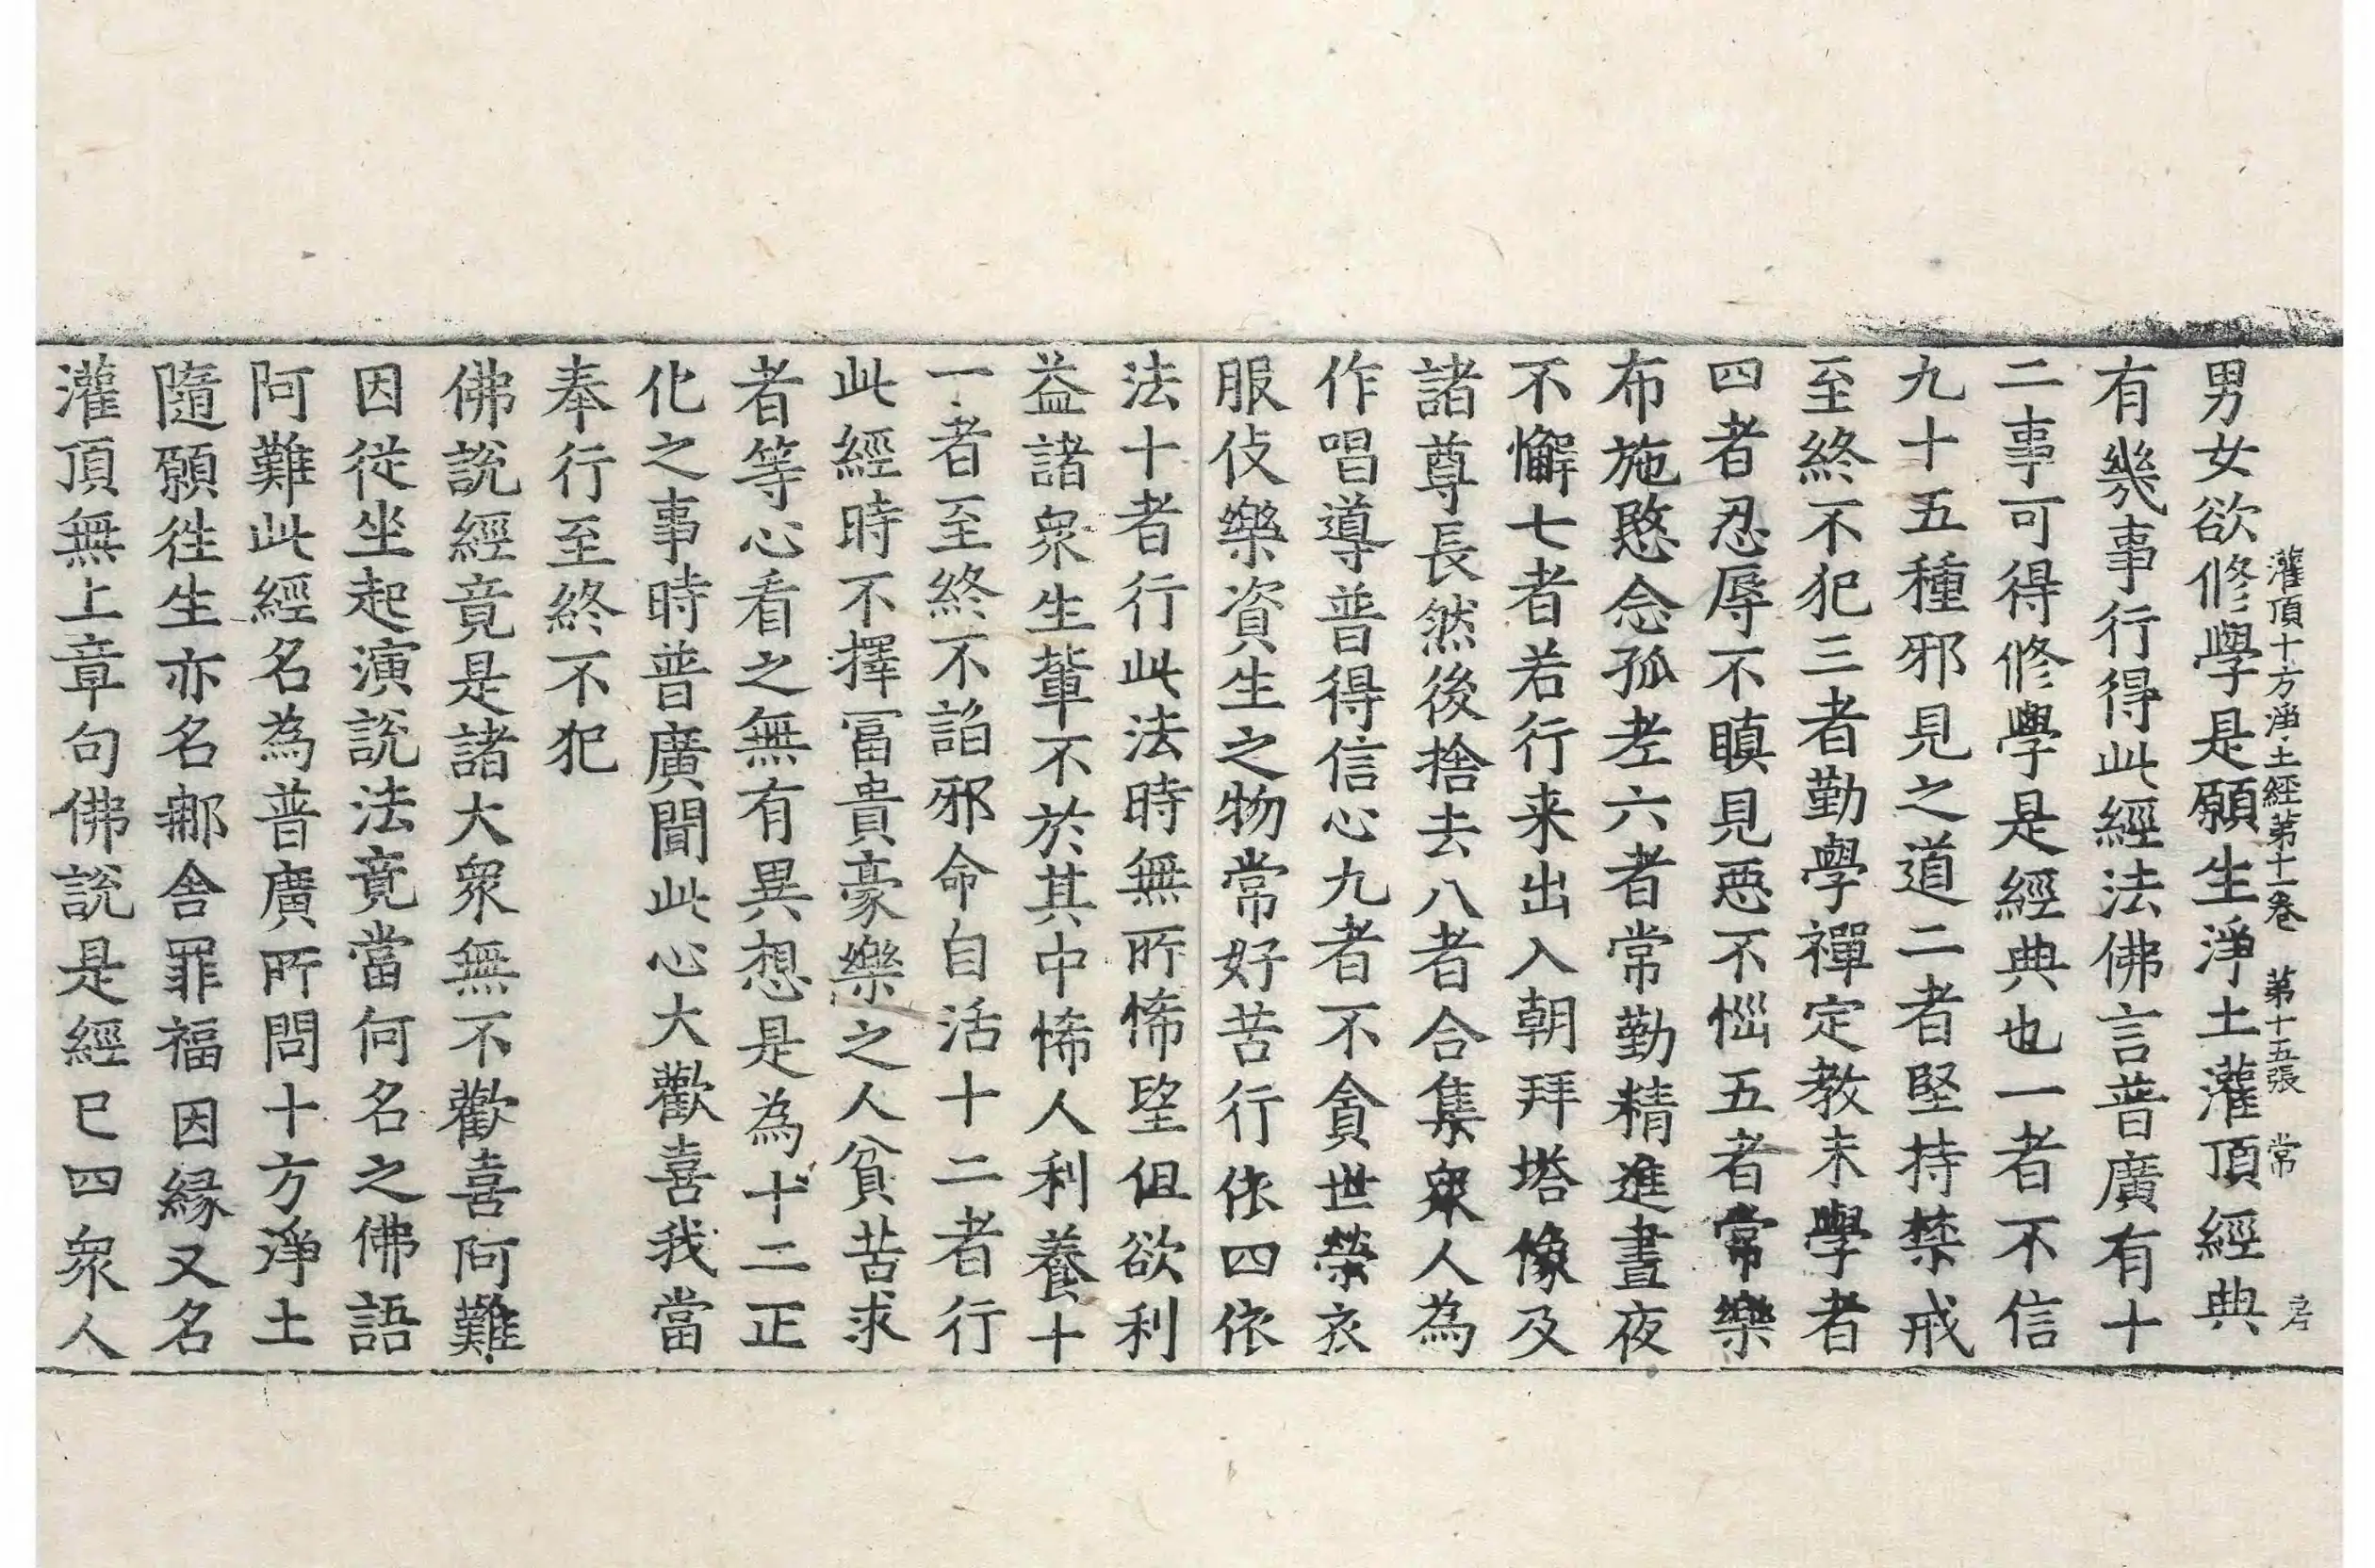 灌頂十方淨土經第十一卷 第十五張 常
男女欲修學是願生淨土灌頂經典
有幾事行得此經法佛言普廣有十
二事可得修學是經典也一者不信
九十五種邪見之道二者堅持禁戒
至終不犯三者勤學禪定教未學者
四者忍辱不瞋見惡不惱五者常樂
布施愍念孤老六者常勤精進晝夜
不懈七者若行来出入朝拜塔像及
諸尊長然後捨去八者合集眾人為
作唱導普得信心九者不貪世榮衣
服伎樂資生之物常好苦行依四依
法十者行此法時無所悕望但欲利
益諸眾生輩不於其中悕人利養十
一者至終不諂邪命自活十二者行
此經時不擇冨貴豪樂之人貧苦求
者等心看之無有異想是為十二正
化之事時普廣聞此心大歡喜我當
奉行至終不犯
佛說經竟是諸大眾無不歡喜阿難
因從坐起演說法竟當何名之佛語
阿難此經名為普廣所問十方淨土
隨願往生亦名鄁舍罪福因緣又名
灌頂無上章句佛說是經已四眾人